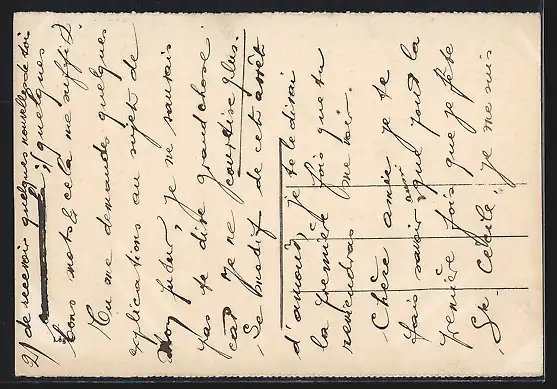 2) de recevoir quelques nouvelles de toi
quelques
bons mots & cela me suffit.
Tu me demandes quelques
explications au sujet de
mon futur, je ne saurais
pas te dire grand chose
car je ne courdise plus.
Le motif de cet arrêt
d'amour, je te le dirai
la première fois que tu
reviendras me voir.
Chère amie je te
fais savoir aussi que pour la
première fois que je fête
Ste Cécile je me suis